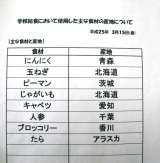 学校給食において使用した主な食材の産地について
平成25年 3月15日(金)
[主な食材と産地]
食材 産地
にんにく 青森
玉ねぎ 北海道
ピーマン 茨城
じゃがいも 北海道
キャベツ 愛知
人参 千葉
ブロッコリー 香川
たら アラスカ